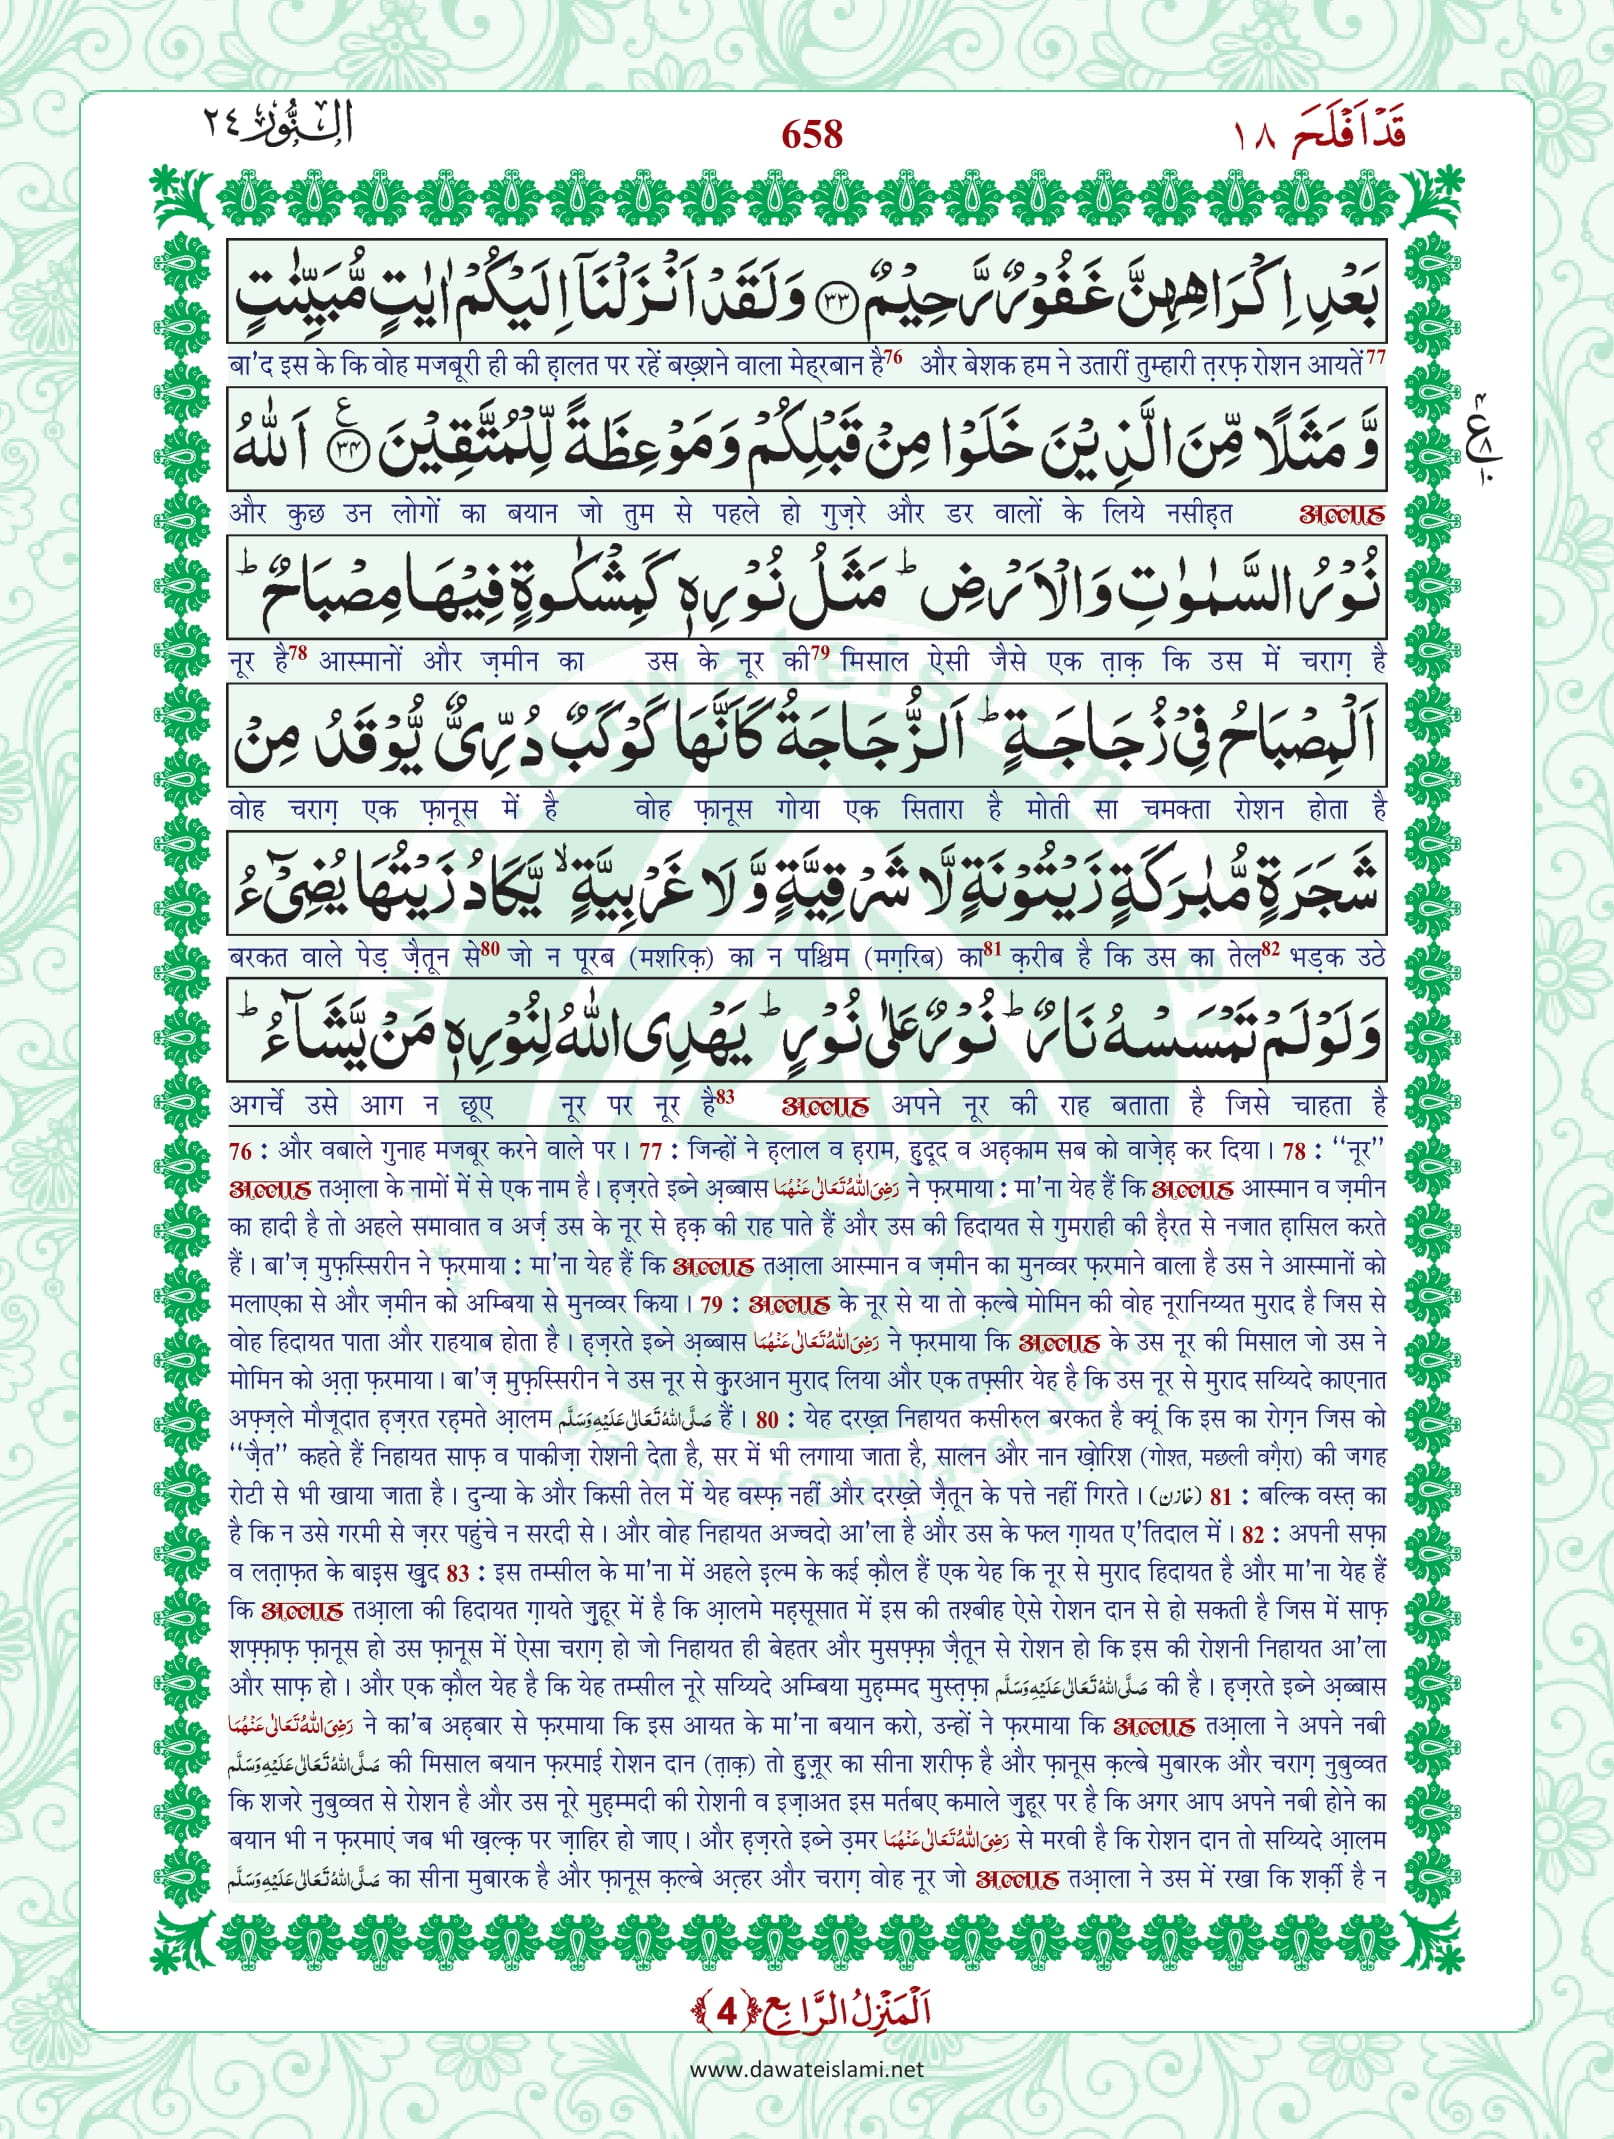 قَدْ اَفْلَحَ ١٨ 658 اَلنُّوْر ٢٤
بَعْدِ اِكْرَاهِهِنَّ غَفُوْرٌ رَّحِيْمٌ ﴿٣٣﴾ وَلَقَدْ اَنْزَلْنَاۤ اِلَيْكُمْ اٰيٰتٍ مُّبَيِّنٰتٍ
बा'द इस के कि वोह मजबूरी ही की ह़ालत पर रहें बख़्शने वाला मेह्रबान है76 और बेशक हम ने उतारीं तुम्हारी त़रफ़ रोशन आयतें77
وَّ مَثَلًا مِّنَ الَّذِيْنَ خَلَوْا مِنْ قَبْلِكُمْ وَمَوْعِظَةً لِّلْمُتَّقِيْنَ ﴿٣٤﴾ اَللّٰهُ
और कुछ उन लोगों का बयान जो तुम से पहले हो गुज़रे और डर वालों के लिये नसीह़त अल्लाह
نُوْرُ السَّمٰوٰتِ وَالْاَرْضِ ؕ مَثَلُ نُوْرِهٖ كَمِشْكٰوةٍ فِيْهَا مِصْبَاحٌ ؕ
नूर है78 आस्मानों और ज़मीन का उस के नूर की79 मिसाल ऐसी जैसे एक त़ाक़ कि उस में चराग़ है
اَلْمِصْبَاحُ فِيْ زُجَاجَةٍ ؕ اَلزُّجَاجَةُ كَاَنَّهَا كَوْكَبٌ دُرِّيٌّ يُّوْقَدُ مِنْ
वोह चराग़ एक फ़ानूस में है वोह फ़ानूस गोया एक सितारा है मोती सा चमक्ता रोशन होता है
شَجَرَةٍ مُّبٰرَكَةٍ زَيْتُوْنَةٍ لَّا شَرْقِيَّةٍ وَّ لَا غَرْبِيَّةٍ ۙ يَّكَادُ زَيْتُهَا يُضِيْٓءُ
बरकत वाले पेड़ ज़ैतून से80 जो न पूरब (मशरिक़) का न पश्चिम (मग़रिब) का81 क़रीब है कि उस का तेल82 भड़क उठे
وَلَوْ لَمْ تَمْسَسْهُ نَارٌ ؕ نُوْرٌ عَلٰى نُوْرٍ ؕ يَهْدِى اللّٰهُ لِنُوْرِهٖ مَنْ يَّشَآءُ ؕ
अगर्चे उसे आग न छूए नूर पर नूर है83 अल्लाह अपने नूर की राह बताता है जिसे चाहता है
76 : और वबाले गुनाह मजबूर करने वाले पर। 77 : जिन्हों ने ह़लाल व ह़राम, ह़ुदूद व अह़काम सब को वाज़ेह़ कर दिया। 78 : ‘‘नूर’’
अल्लाह तआ़ला के नामों में से एक नाम है। ह़ज़रते इब्ने अ़ब्बास رَضِیَ اللّٰهُ تَعَالٰی عَنْهُمَا ने फ़रमाया : मा'ना येह हैं कि अल्लाह आस्मान व ज़मीन
का हादी है तो अहले समावात व अर्ज़ उस के नूर से ह़क़ की राह पाते हैं और उस की हिदायत से गुमराही की ह़ैरत से नजात ह़ासिल करते
हैं। बा'ज़ मुफ़स्सिरीन ने फ़रमाया : मा'ना येह हैं कि अल्लाह तआ़ला आस्मान व ज़मीन का मुनव्वर फ़रमाने वाला है उस ने आस्मानों को
मलाएका से और ज़मीन को अम्बिया से मुनव्वर किया। 79 : अल्लाह के नूर से या तो क़ल्बे मोमिन की वोह नूरानिय्यत मुराद है जिस से
वोह हिदायत पाता और राहयाब होता है। ह़ज़रते इब्ने अ़ब्बास رَضِیَ اللّٰهُ تَعَالٰی عَنْهُمَا ने फ़रमाया कि अल्लाह के उस नूर की मिसाल जो उस ने
मोमिन को अ़त़ा फ़रमाया। बा'ज़ मुफ़स्सिरीन ने उस नूर से क़ुरआन मुराद लिया और एक तफ़्सीर येह है कि उस नूर से मुराद सय्यिदे काएनात
अफ़्ज़ले मौजूदात ह़ज़रत रह़मते आ़लम صَلَّی اللّٰهُ تَعَالٰی عَلَیْهِ وَسَلَّم हैं। 80 : येह दरख़्त निहायत कसीरुल बरकत है क्यूं कि इस का रोग़न जिस को
‘‘ज़ैत’’ कहते हैं निहायत साफ़ व पाकीज़ा रोशनी देता है, सर में भी लगाया जाता है, सालन और नान ख़ोरिश (गोश्त, मछली वग़ैरा) की जगह
रोटी से भी खाया जाता है। दुन्या के और किसी तेल में येह वस्फ़ नहीं और दरख़्ते ज़ैतून के पत्ते नहीं गिरते। (خازن) 81 : बल्कि वस्त़ का
है कि न उसे गरमी से ज़रर पहुंचे न सरदी से। और वोह निहायत अज्वदो आ'ला है और उस के फल ग़ायत ए'तिदाल में। 82 : अपनी सफ़ा
व लत़ाफ़त के बाइस ख़ुद 83 : इस तम्सील के मा'ना में अहले इल्म के कई क़ौल हैं एक येह कि नूर से मुराद हिदायत है और मा'ना येह हैं
कि अल्लाह तआ़ला की हिदायत ग़ायते ज़ुहूर में है कि आ़लमे मह़सूसात में इस की तश्बीह ऐसे रोशन दान से हो सकती है जिस में साफ़
शफ़्फ़ाफ़ फ़ानूस हो उस फ़ानूस में ऐसा चराग़ हो जो निहायत ही बेहतर और मुसफ़्फ़ा ज़ैतून से रोशन हो कि इस की रोशनी निहायत आ'ला
और साफ़ हो। और एक क़ौल येह है कि येह तम्सील नूरे सय्यिदे अम्बिया मुह़म्मद मुस्त़फ़ा صَلَّی اللّٰهُ تَعَالٰی عَلَیْهِ وَسَلَّم की है। ह़ज़रते इब्ने अ़ब्बास
رَضِیَ اللّٰهُ تَعَالٰی عَنْهُمَا ने का'ब अह़बार से फ़रमाया कि इस आयत के मा'ना बयान करो, उन्हों ने फ़रमाया कि अल्लाह तआ़ला ने अपने नबी
صَلَّی اللّٰهُ تَعَالٰی عَلَیْهِ وَسَلَّم की मिसाल बयान फ़रमाई रोशन दान (त़ाक़) तो ह़ुज़ूर का सीना शरीफ़ है और फ़ानूस क़ल्बे मुबारक और चराग़ नुबुव्वत
कि शजरे नुबुव्वत से रोशन है और उस नूरे मुह़म्मदी की रोशनी व इज़ाअत इस मर्तबए कमाले ज़ुहूर पर है कि अगर आप अपने नबी होने का
बयान भी न फ़रमाएं जब भी ख़ल्क़ पर ज़ाहिर हो जाए। और ह़ज़रते इब्ने उ़मर رَضِیَ اللّٰهُ تَعَالٰی عَنْهُمَا से मरवी है कि रोशन दान तो सय्यिदे आ़लम
صَلَّی اللّٰهُ تَعَالٰی عَلَیْهِ وَسَلَّم का सीना मुबारक है और फ़ानूस क़ल्बे अत़्हर और चराग़ वोह नूर जो अल्लाह तआ़ला ने उस में रखा कि शर्क़ी है न
اَلْمَنْزِلُ الرَّابِع ﴿4﴾
www.dawateislami.net